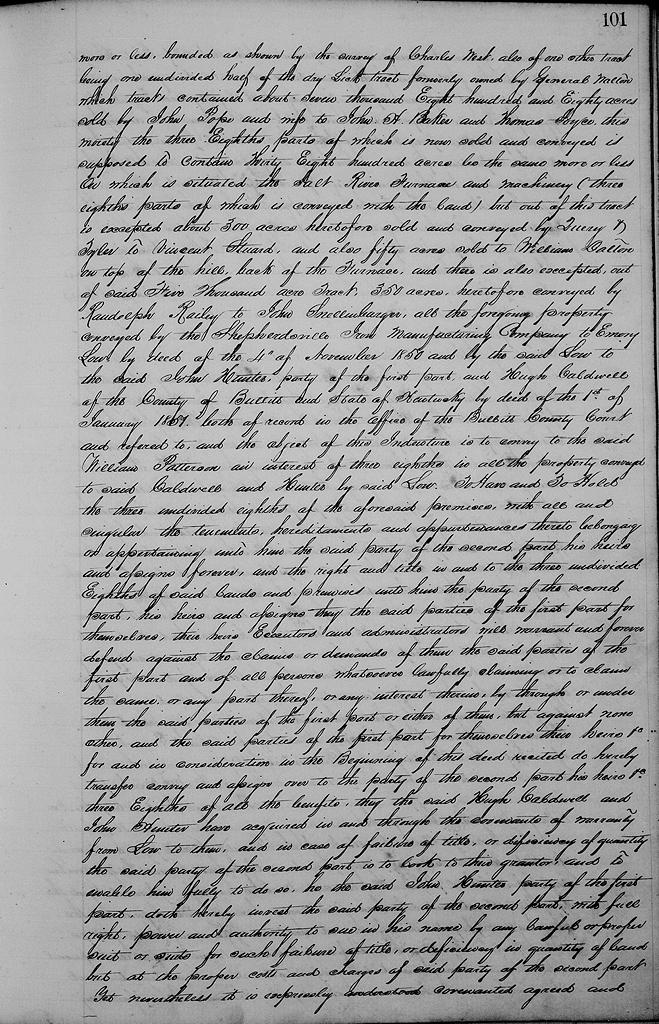 101
more or less, bounded as shown by the survey of Charles West. also of one other tract
being one undivided half of the dry Lick tract formerly owned by General
which tracts contained about Seven thousand Eight hundred and Eighty acres
sold by John Pope and wife to John A. and Thomas Joyce. this
moiety the three Eighths parts of which is now sold and conveyed is
supposed to Contain thirty Eight hundred acres be the same more or less
On which is situated the Salt River Furnace and machinery (three
eighths parts of which is conveyed with the land) but out of this tract
is excepted about 300 acres heretofore sold and conveyed by &
Tyler to Vincent and also fifty acres sold to William
on top of the hill, back of the Furnace, and there is also excepted, out
of said Five Thousand acre Tract, 350 acres, heretofore conveyed by
Randolph Railey to John Snellenbarger, all the forgoing property
conveyed by the Shepherdsville Iron Manufacturing Company to Emory
Low by deed of the 4" of November 1850 and by the said Low to
the said John Hunter, party of the first part, and Hugh Caldwell
of the County of Bullitt and State of Kentucky by deed of the 1st of
January 1851. both of record in the office of the Bullitt County Court
and refered to, and the object of this Indenture is to convey to the said
William Patterson an interest of three eighths in all the property conveyed
to said Caldwell and Hunter by said Low. To Have and To Hold
the three undivided eighths of the aforesaid premises, with all and
singular the tenements, hereditaments and appurtenances thereto belonging
or appertaining unto him the said party of the second part, his heirs
and assigns forever, and the right and title in and to the three undivided
Eighths of said lands and premises unto him the party of the second
part, his heirs and assigns they the said parties of the first part for
themselves, their heirs Executors and administrators will warrant and forever
defend against the claims or demands of them the said parties of the
first part and of all persons whatsoever lawfully claiming or to claim
the same, or any part thereof, or any interest therein, by through or under
them the said parties of the first part or either of them, but against none
other, and the said parties of the first part for themselves their heirs &c
for and in consideration in the Beginning of this deed recited do hereby
transfer convey and assign over to the party of the second part his heirs &c
three Eighths of all the benefits, they the said Hugh Caldwell and
John Hunter have acquired in and through the covenants of warranty
from Low to them, and in case of failure of title, or dificiency of quantity
the said party of the second part is to look to this grantor, and to
enable him fully to do so, he the said John Hunter party of the first
part, doth hereby invest the said party of the second part, with full
right, power and authority to sue in his name by any lawful or proper
suit or suits for such failure of title, or deficiency in quantity of land
but at the proper costs and charges of said party of the second part
Yet nevertheless it is expressly understood covenanted agreed and